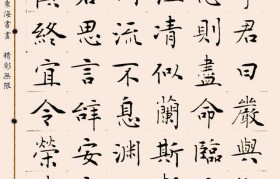 君曰嚴與
則盡命臨
清似蘭斯
流不息淵
思言辭安
終宜令榮
東海書畫 精彩無限